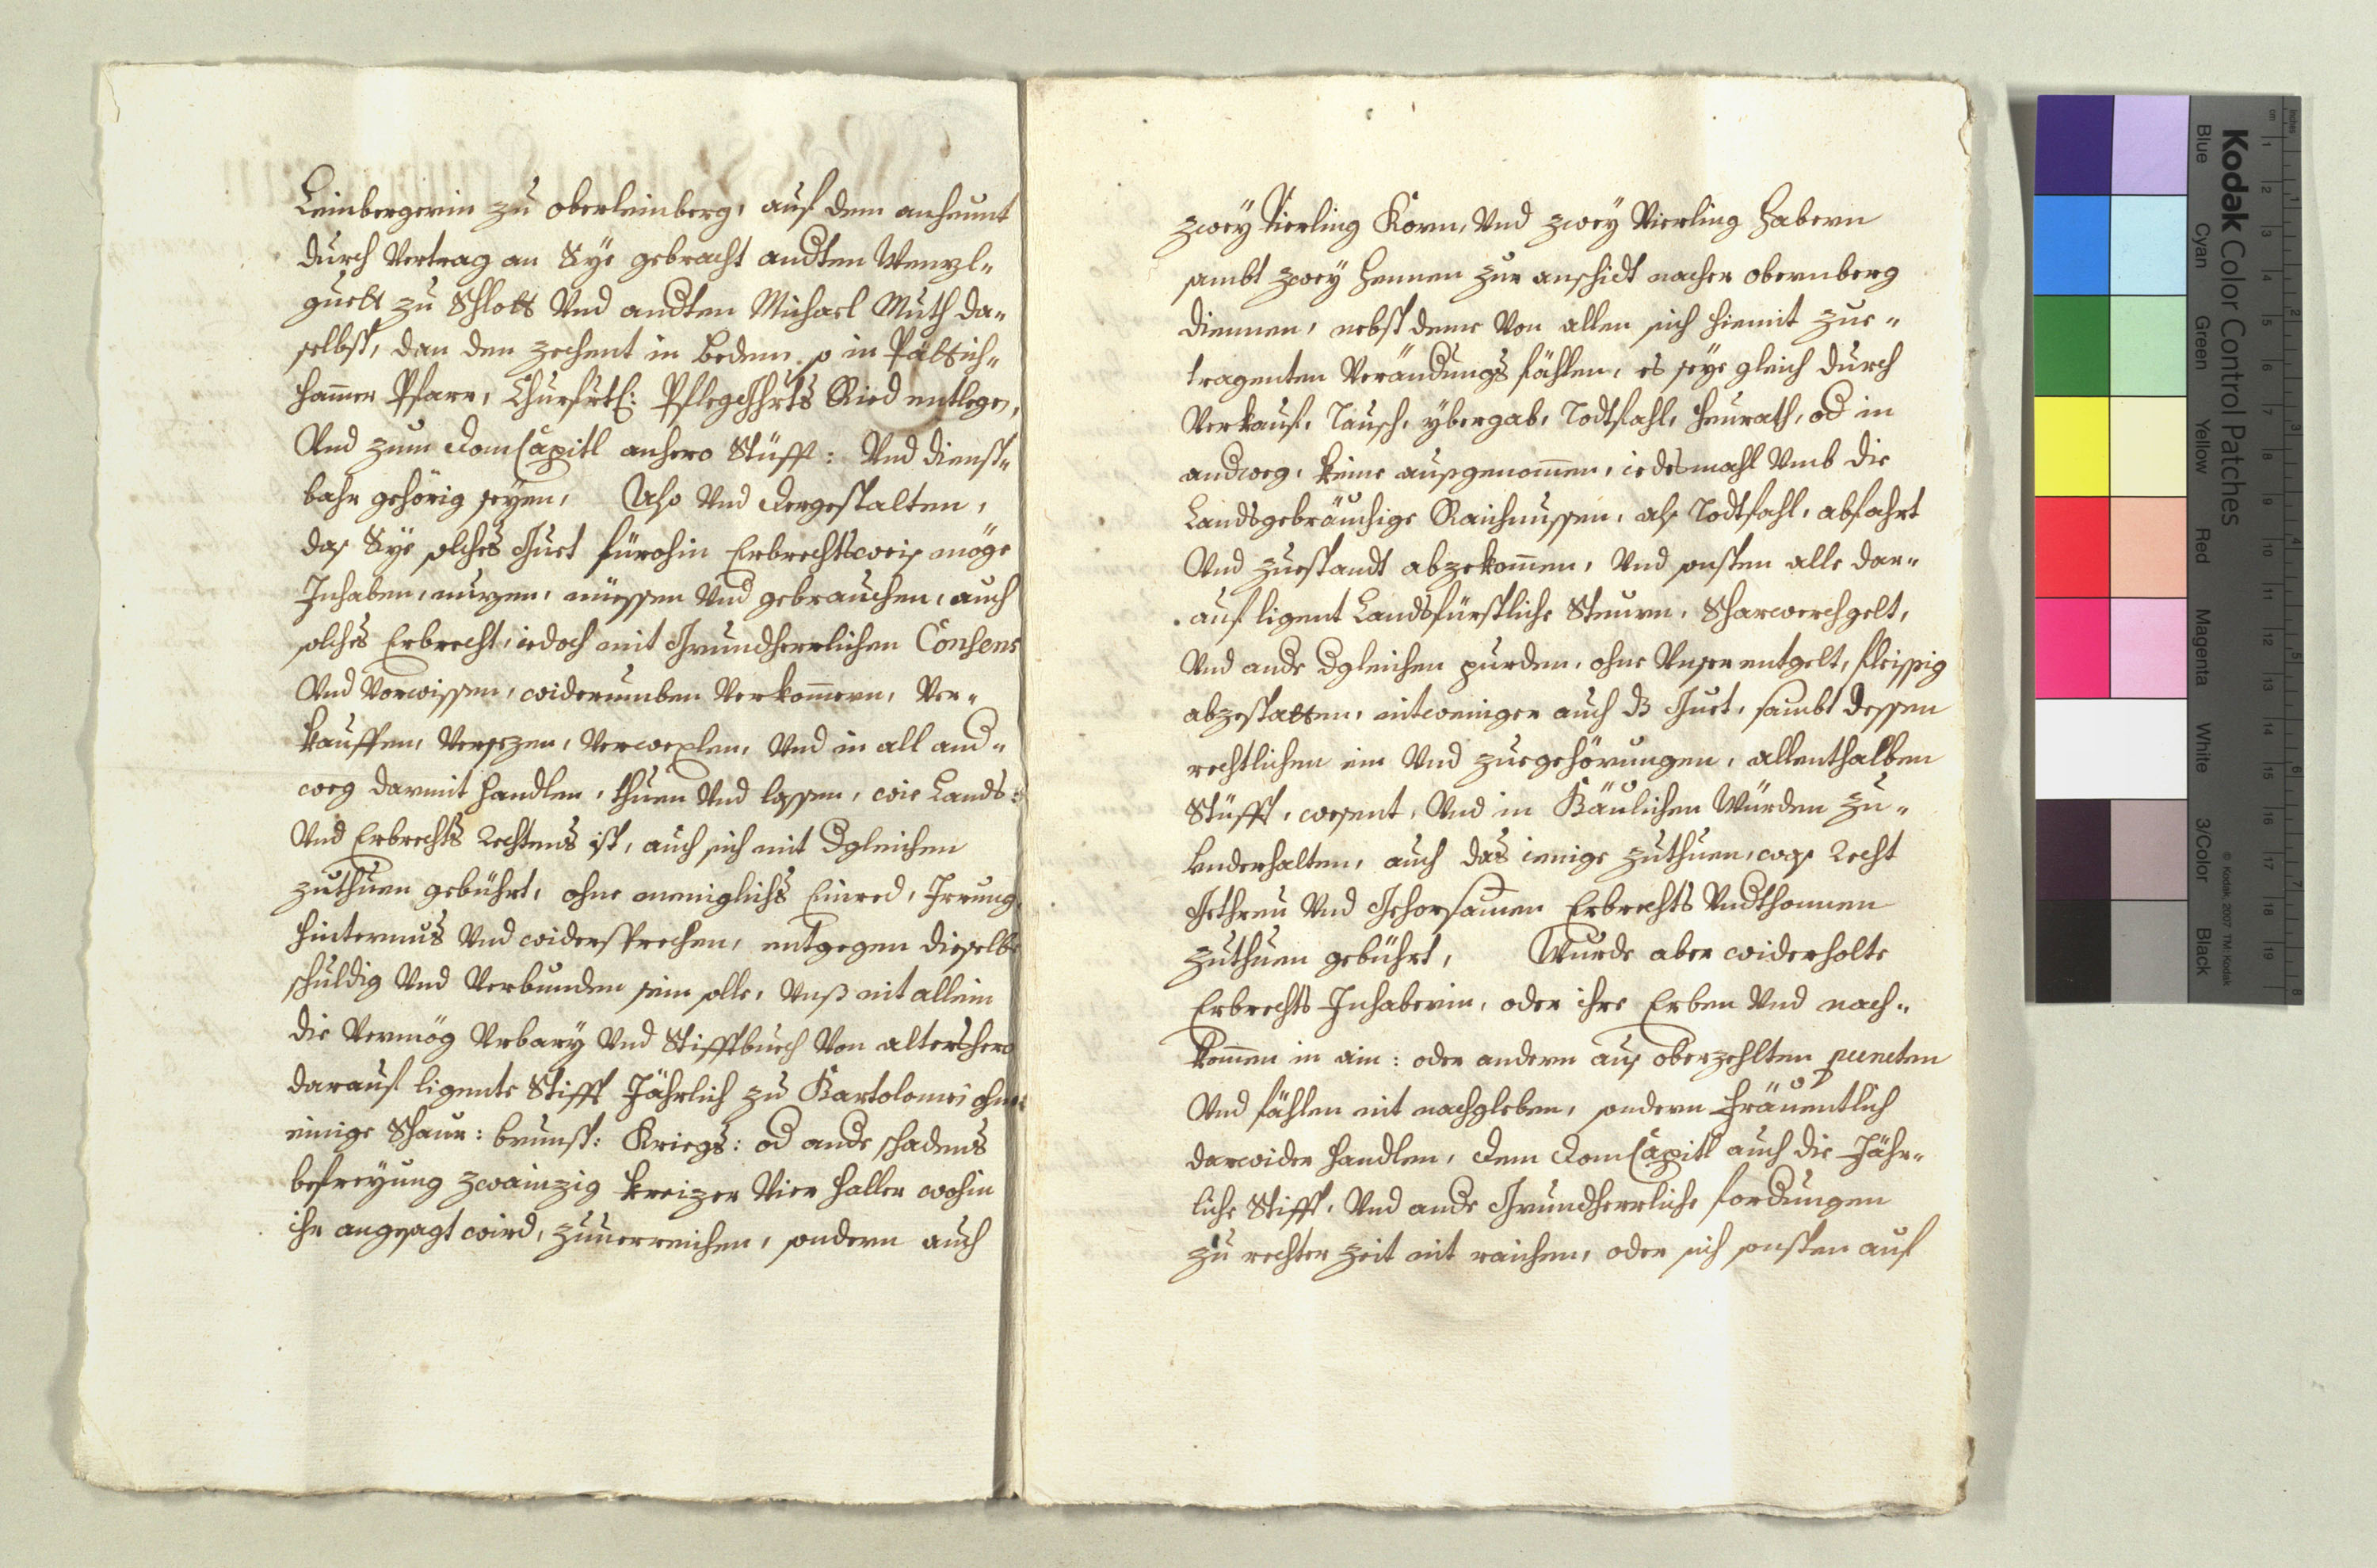 Leimbergerin zu oberleimberg, auf dem anheunt
durch Vertrag an Sye gebracht andten Wenzl-
guett zu Schlott Und andten Michael Muth da-
selbst, dan den zechent in bedem, so in
hamer Pfarr, Churfrtl: Pflegghrts Ried entlegen,
Und zum DomCapitl anhero Stüfft: Und dienst-
bahr gehörig seyen, Also Und dergestalten,
das Sye solches Guet fürohin Erbrechtsweis möge
Inhaben, nuzen, niessen Und gebrauchen, auch
solches Erbrecht, iedoch mit Grundherrlichen Consens
Und Vorwissen, widerumben Verkomern, Ver-
kauffen, Versezen, Verwexlen, Und in all and-
weg darmit handlen, thuen Und lassen, wie Lands:
Und Erbrechts Rechtens ist, auch sich mit dgleichen
zuthuen gebührt, ohne meniglichs Einred, Irrung,
hinternus Und widersprechen, entgegen dieselbe
schuldig Und Verbunden sein solle, Unß nit allein
die Vermög Urbary Und Stifftbuech Von altershero
darauf ligente Stifft Jährlich zu Bartolomei ohne
einige Schaur: brunst: Kriegs: od ande schadens
befreyung zwainzig kreizer Vier haller wohin
ihr angesagt wird, zuuerreichen, sondern auch
zwey Vierling Korn, Und zwey Vierling habern
sambt zwey hennen zur anschidt nacher obernberg
diennen, nebst deme Von allen sich hiemit zue-
tragenten Verändungs fählen, es seye gleich durch
Verkauf, Tausch, ybergab, Todtfahl, heurath, od in
andweg, keine ausgenomen, iedesmahl Umb die
Landsgebräuchige Raichnussen, als Todtfahl, abfahrt
Und zuestandt abzekomen, Und sonsten alle dar-
auf ligent Landsfürstliche Steurn, Scharwerchgelt,
Und ande dgleichen purden, ohne Unser entgelt, fleissig
abzestatten, nitweniger auch dz Guet, sambt dessen
rechtlichen ein Und zuegehörungen, allenthalben
Stüfft, wesent, Und in Bäulichen Würden zu-
Underhalten, auch das ienige zuthuen, was Recht
Gethreu Und Gehorsamen Erbrechts Undthonnen
zuthuen gebührt, Wurde aber widerholte
Erbrechts Inhaberin, oder ihre Erben Und nach-
komen in ain: oder andern aus oberzehlten puncten
Und fählen nit nachgleben, sondern fräuentlich
darwider handlen, dem DomCapitl auch die Jähr-
liche Stifft, Und ande Grundherrliche fordungen
zu rechter zeit nit raichen, oder sich sonsten auf
Kodak Color Control Patches
Blue Cyan Green Yellow Red Magenta White 3/Color Black
© Kodak, 2007 TM: Kodak